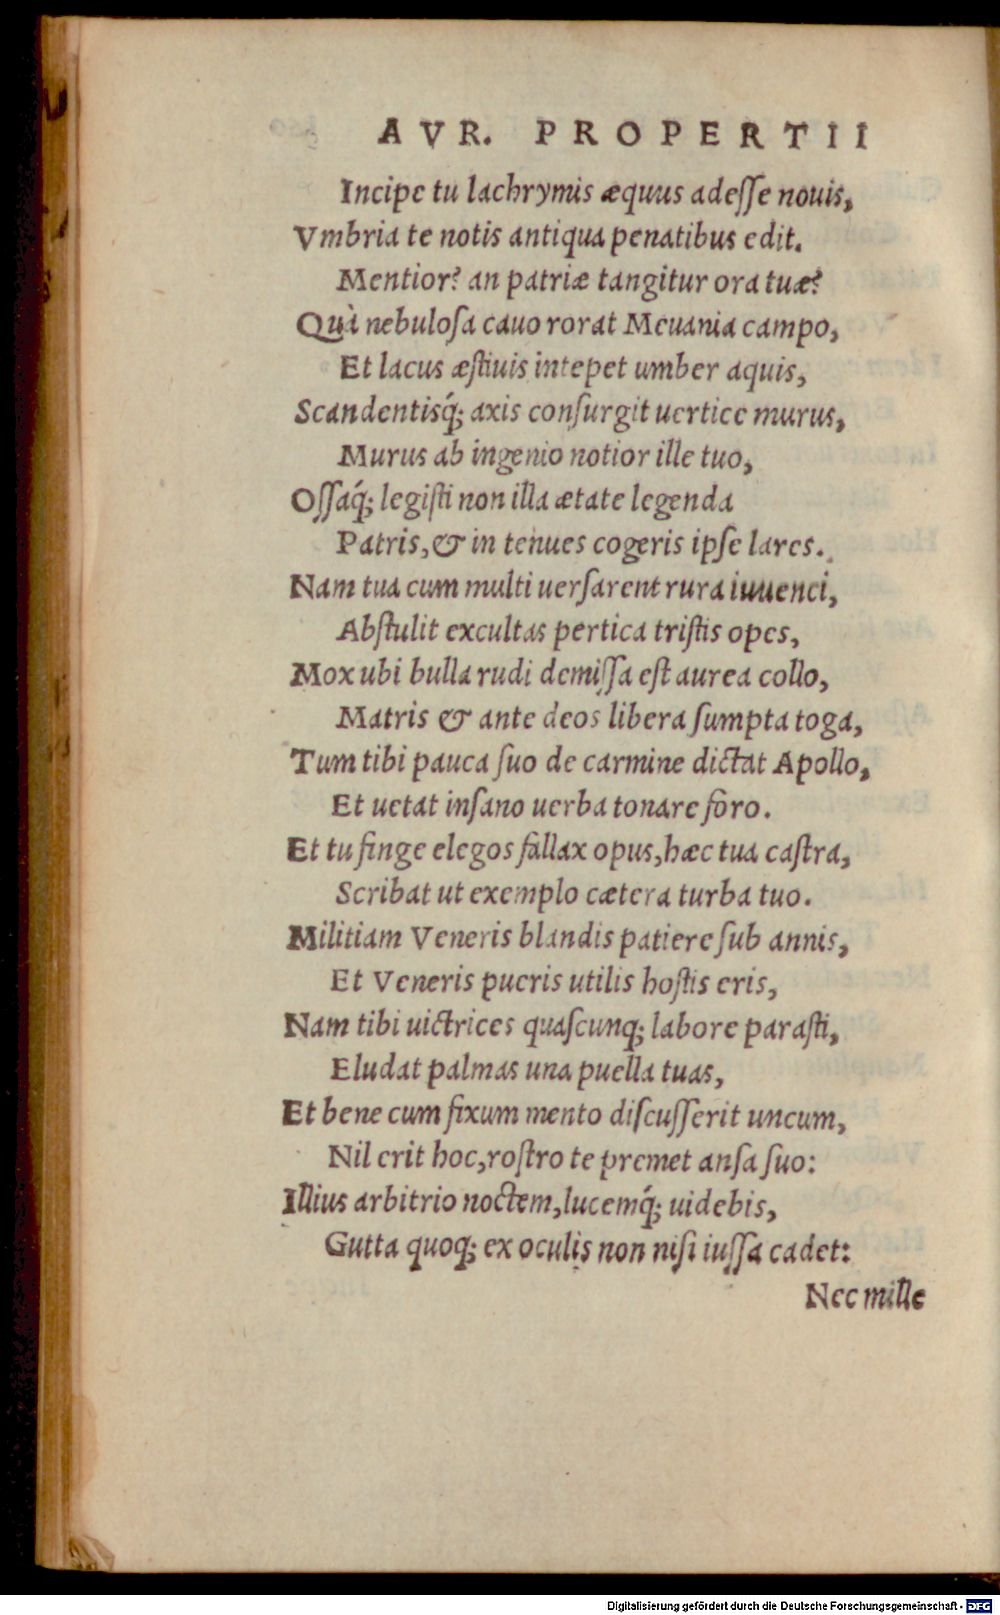 AVR. PROPERTII
Incipe tu lachrymis æquus adesse nouis,
Vmbria te notis antiqua penatibus edit.
Mentior? an patriæ tangitur ora tuæ?
Quà nebulosa cauo rorat Meuania campo,
Et lacus æstiuis intepet umber aquis,
Scandentisq́; axis consurgit uertice murus,
Murus ab ingenio notior ille tuo,
Ossaq́; legisti non illa ætate legenda
Patris, & in tenues cogeris ipse lares.
Nam tua cum multi uersarent rura iuuenci,
Abstulit excultas pertica tristis opes,
Mox ubi bulla rudi demissa est aurea collo,
Matris & ante deos libera sumpta toga,
Tum tibi pauca suo de carmine dictat Apollo,
Et uetat insano uerba tonare foro.
Et tu finge elegos fallax opus, hæc tua castra,
Scribat ut exemplo cætera turba tuo.
Militiam Veneris blandis patiere sub annis,
Et Veneris pueris utilis hostis eris,
Nam tibi uictrices quascunq; labore parasti,
Eludat palmas una puella tuas,
Et bene cum fixum mento discusserit uncum,
Nil erit hoc, rostro te premet ansa suo:
Illius arbitrio noctem, lucemq́; uidebis,
Gutta quoq; ex oculis non nisi iussa cadet:
Nec mille
Digitalisierung gefördert durch die Deutsche Forschungsgemeinschaft - DFG